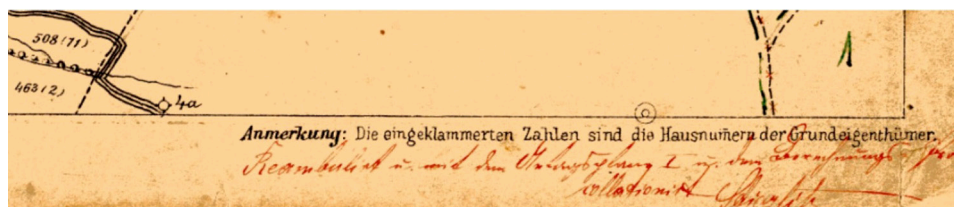 508 (71)
463 (2)
4a
1
Anmerkung: Die eingeklammerten Zahlen sind die Hausnum̄ern der Grundeigenthümer.
Reambulirt u. mit dem I u. den Berechnungs
collationirt